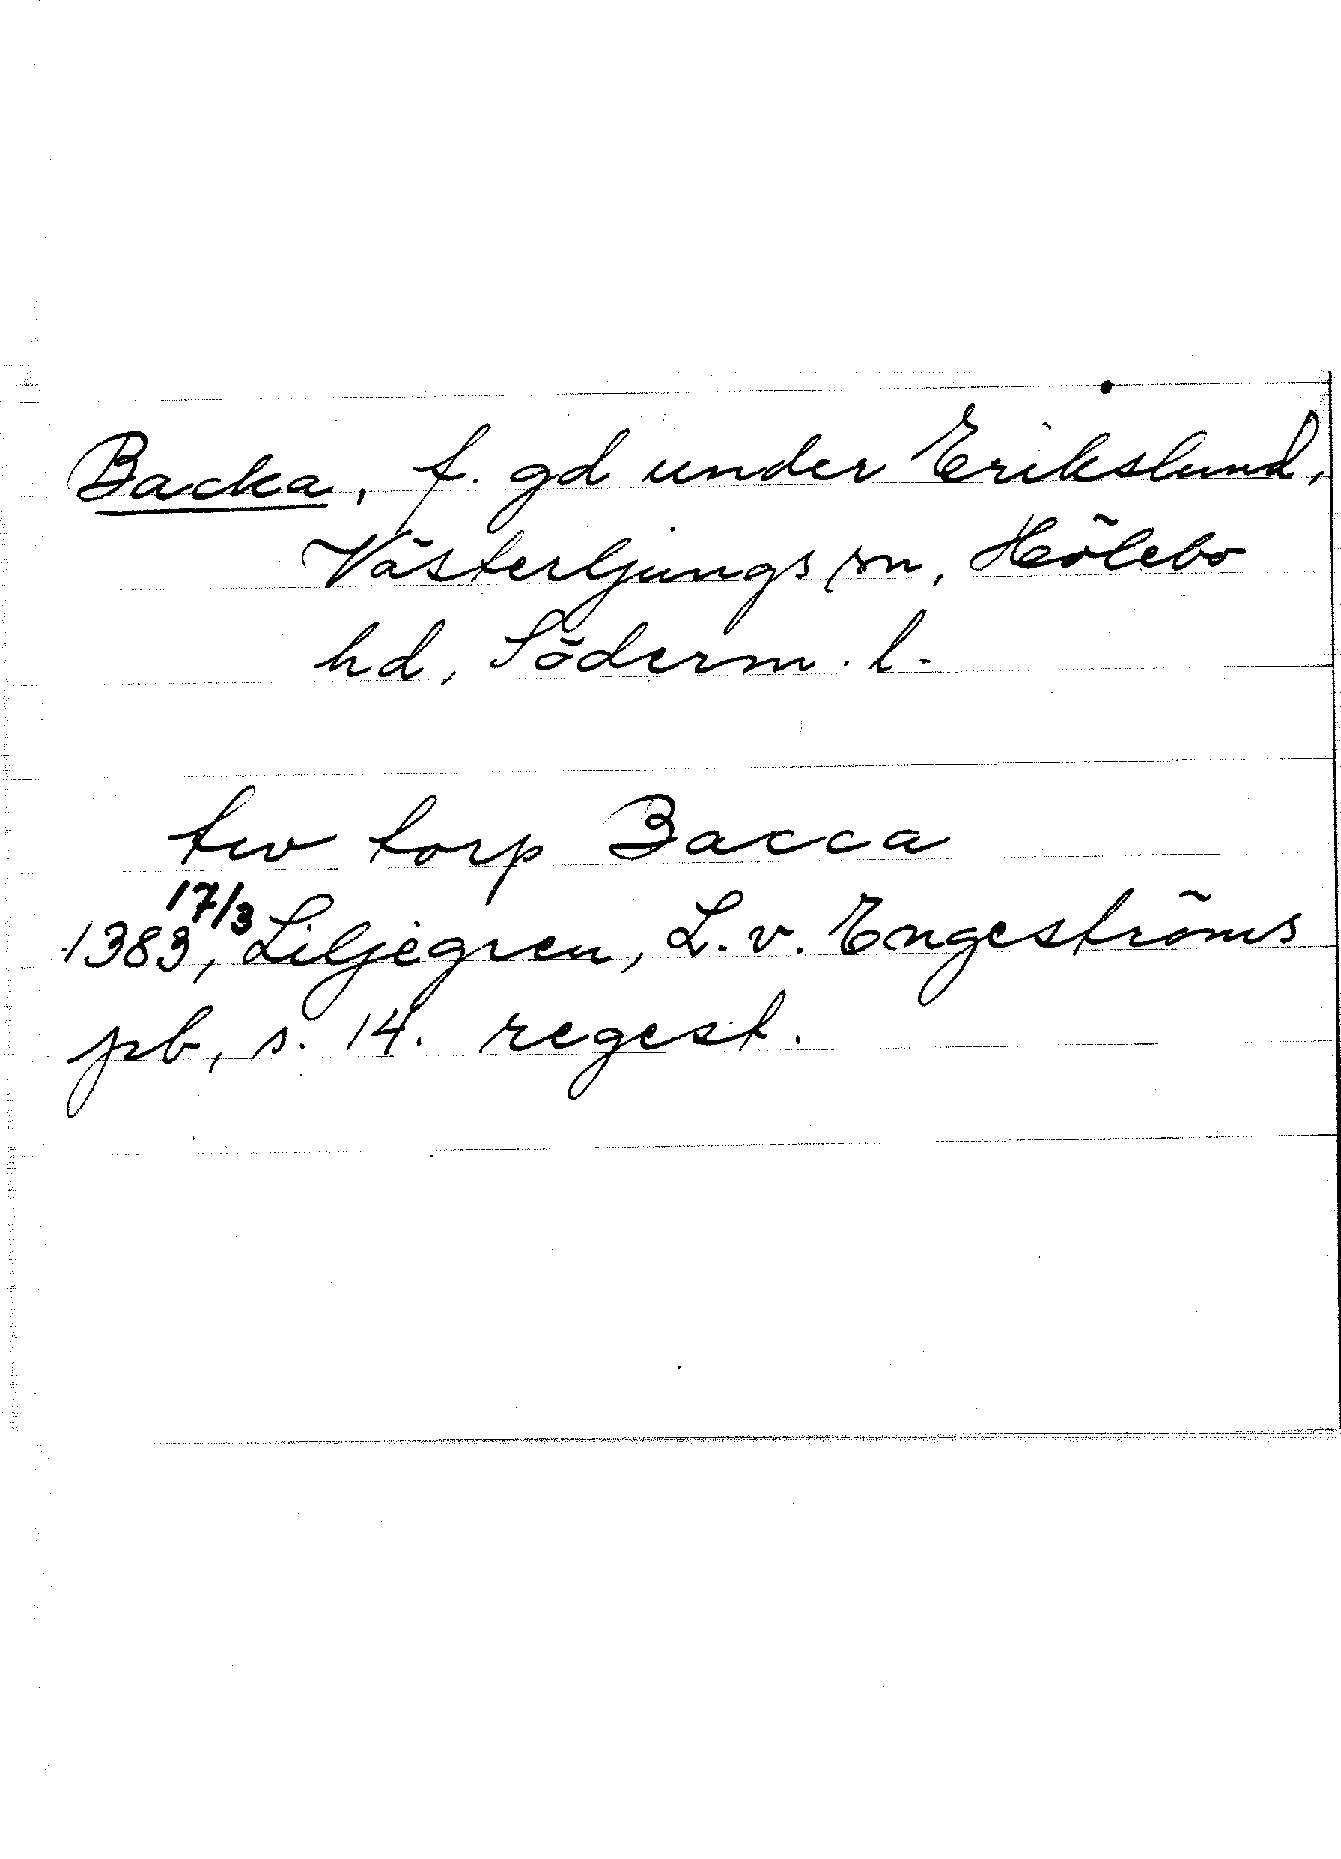 Backa, f. gd under Erikslund,
Västerljungs sn, Hölebo
hd, Söderm. l.
tw torp Bacca
1383 17/3, Liljegren, L. v. Engeströms
pb, s. 14. regest.